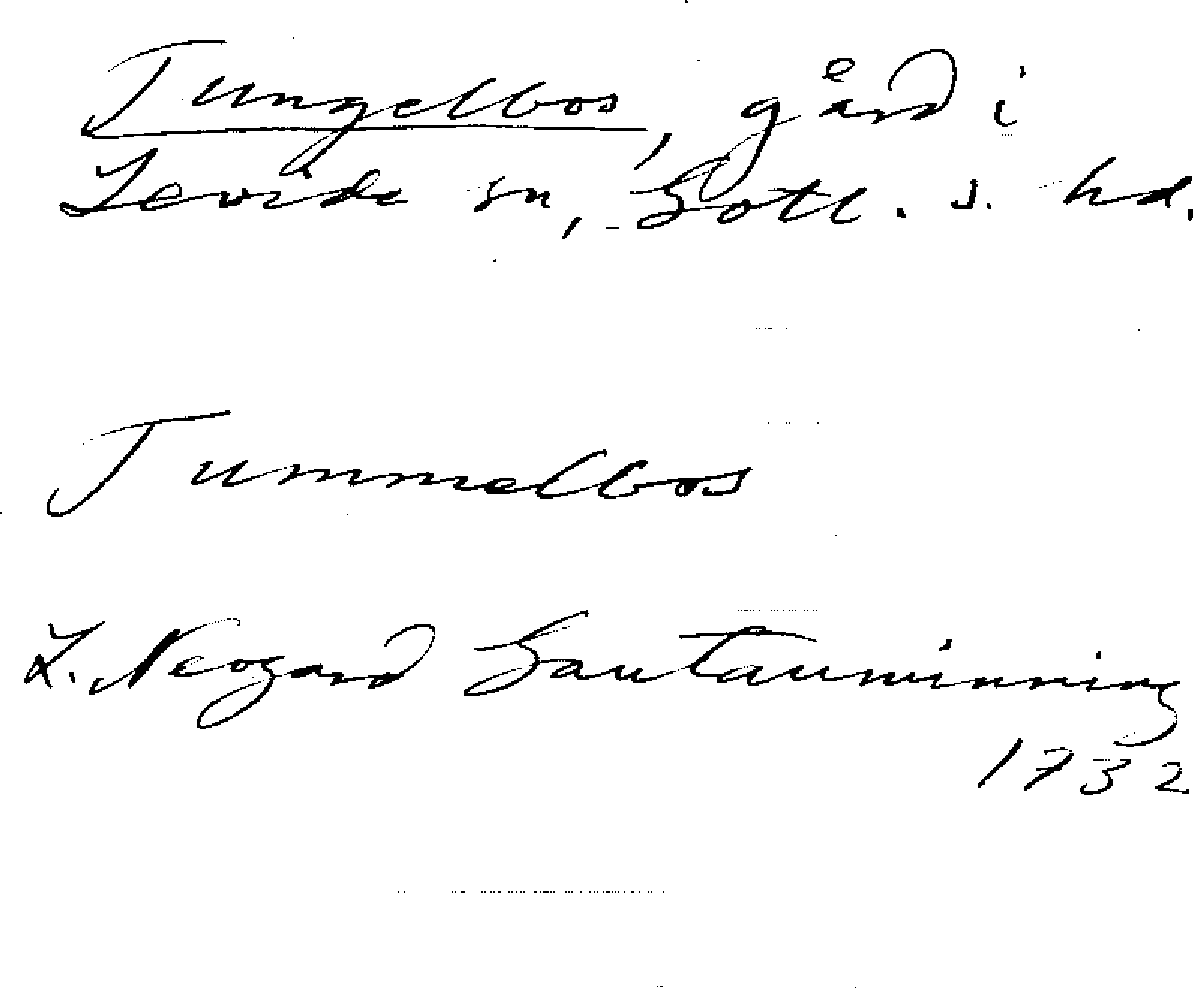 Tungelbos, gård i
Levide sn, Gotl. s. hd.
Tummelbos
L. Neogard Gautauminning
1732